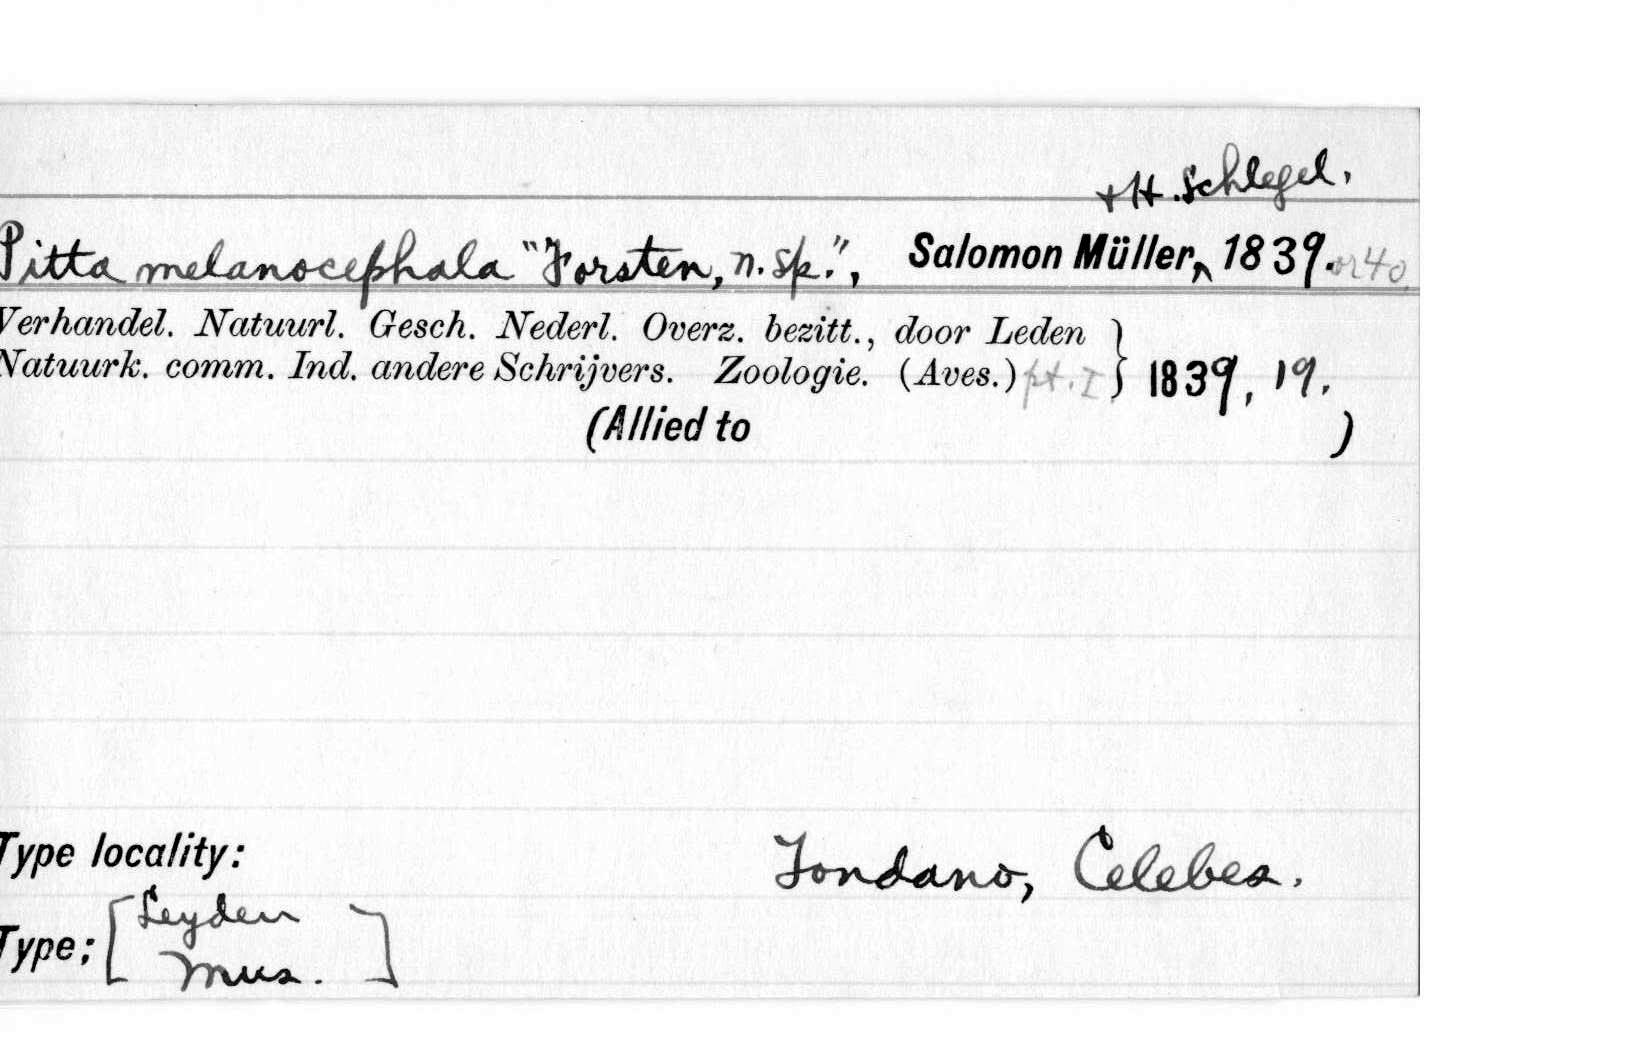 + H. Schlegel.
Pitta melanocephala "Forsten, n. sp.", Salomon Müller, ^ 1839. or 40.
Verhandel. Natuurl. Gesch. Nederl. Overz. bezitt., door Leden
Natuurk. comm. Ind. andere Schrijvers. Zoologie. (Aves.) pt. I } 1839, 19.
(Allied to )
Type locality: Tondano, Celebes.
Type: [Leyden
Mus.]